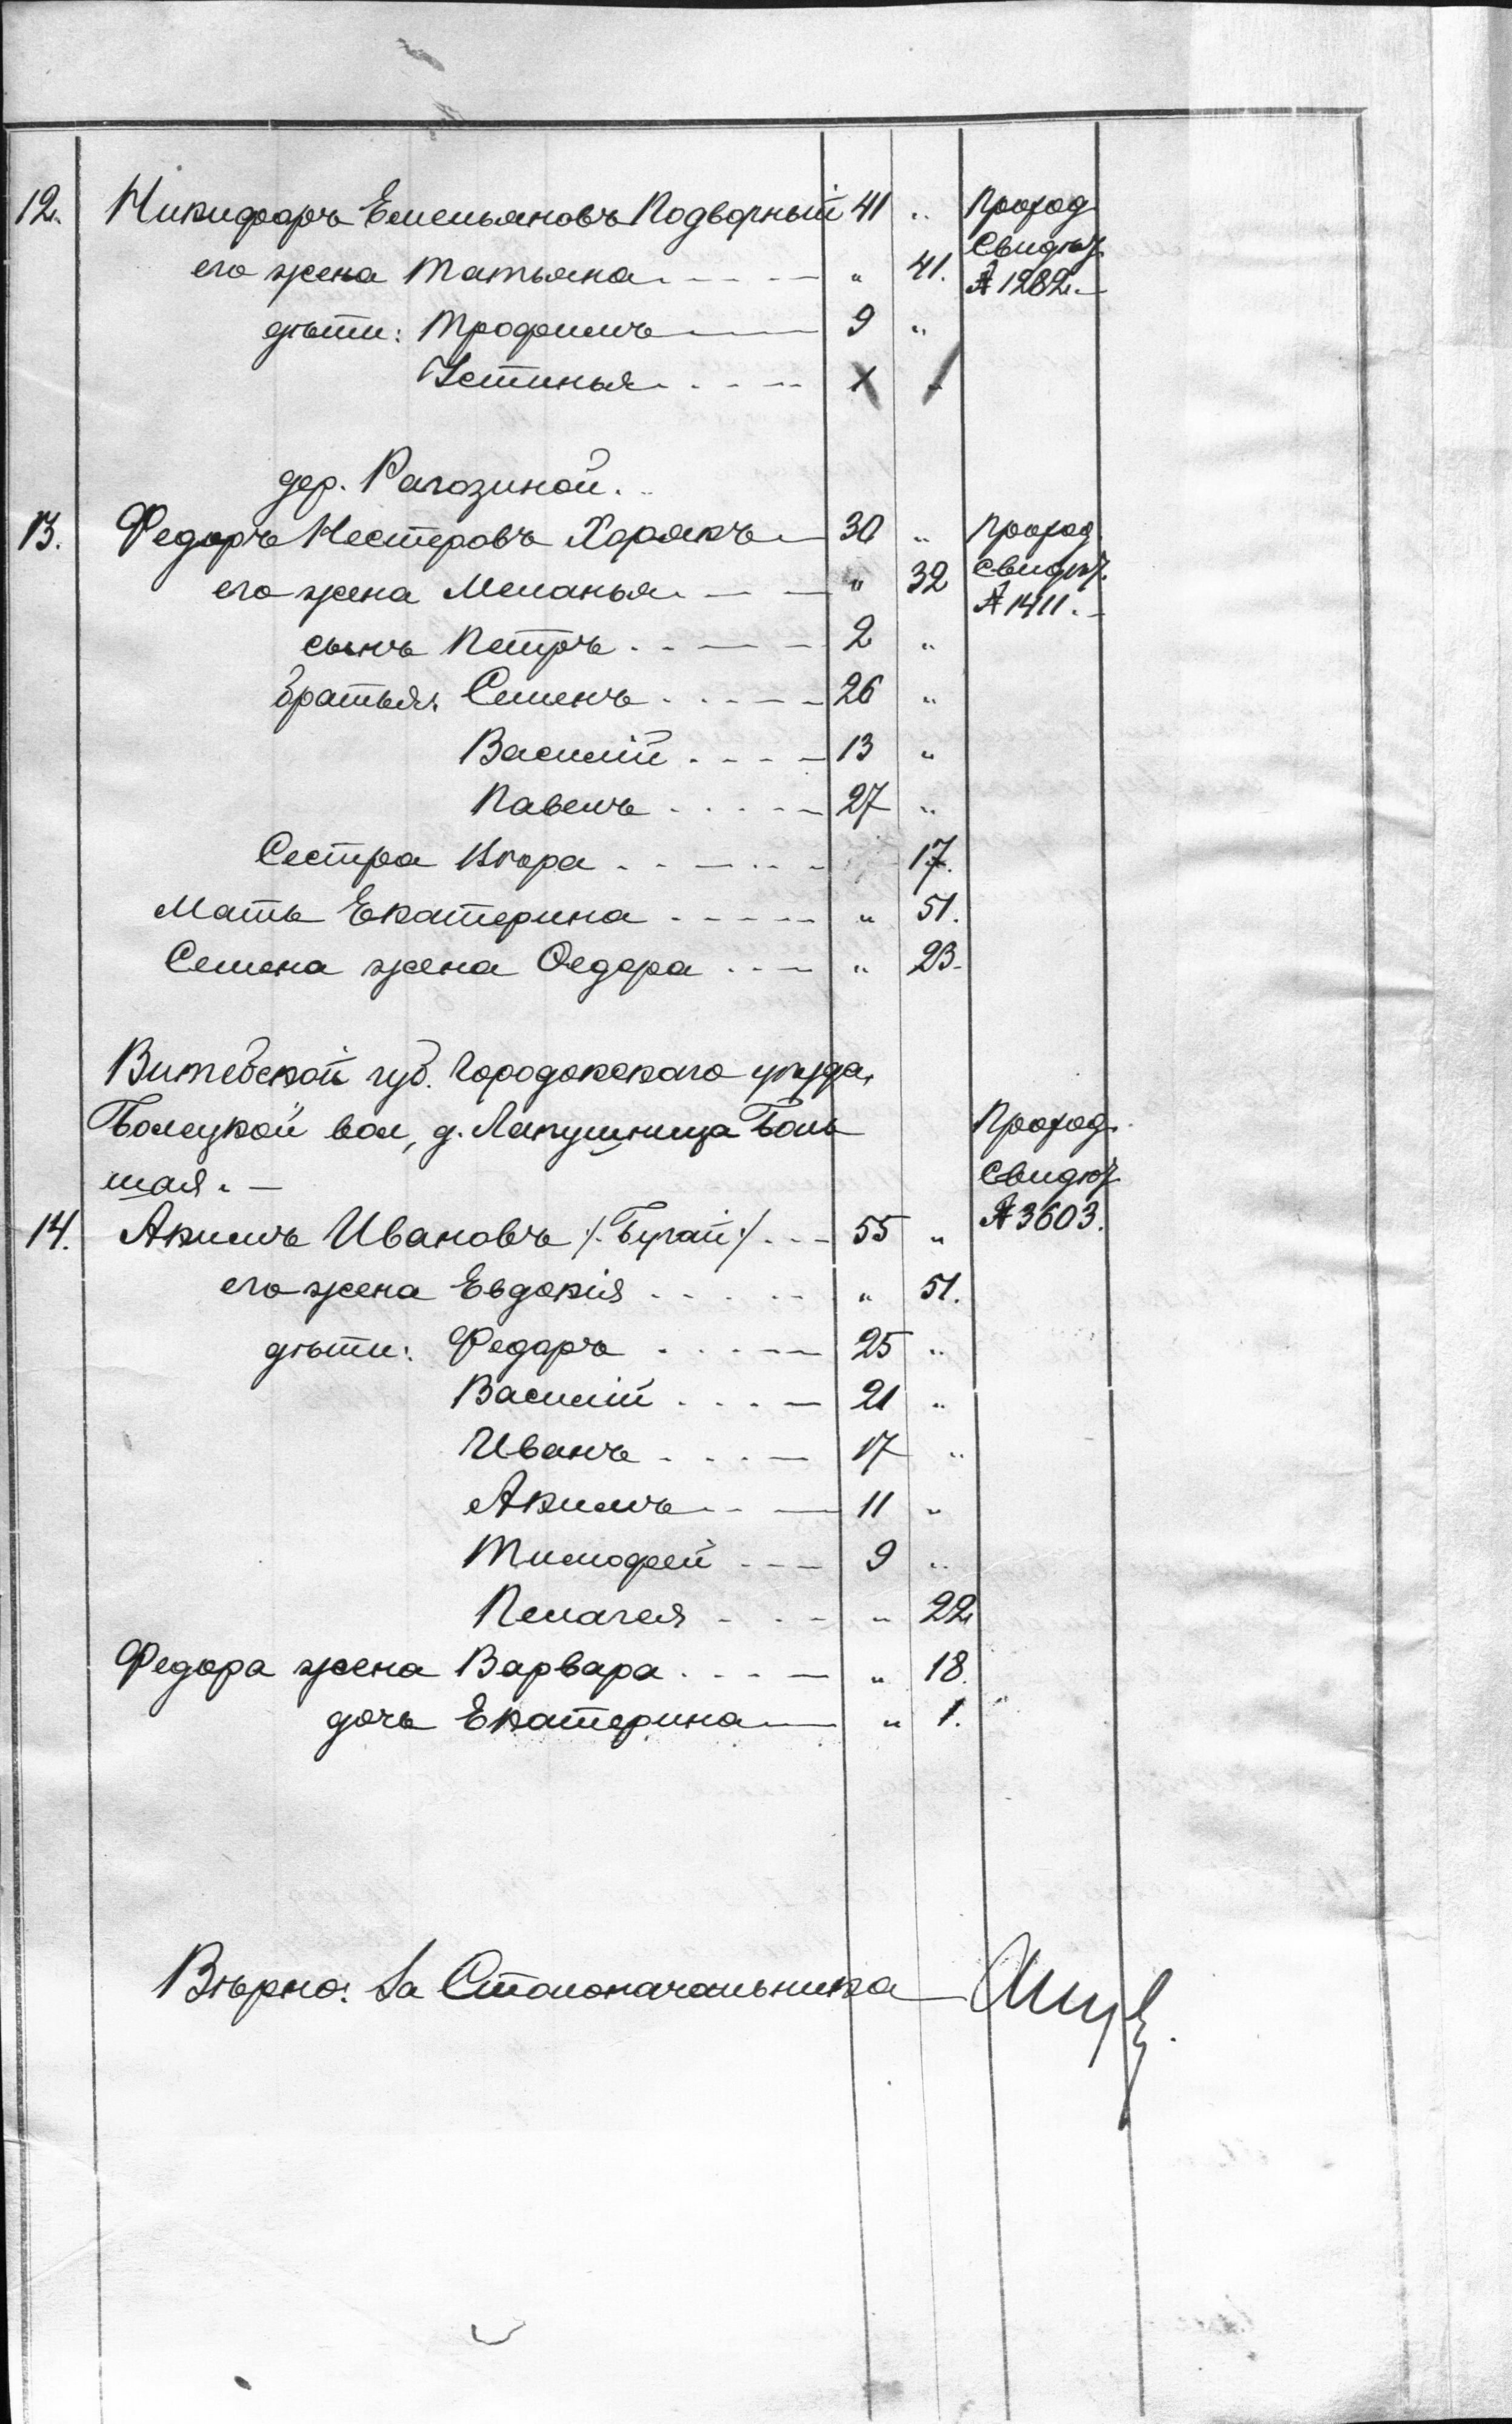 12. Никифоръ Емельяновъ Подворный 41 " Проход.
Свидѣт.
его жена Татьяна " 41. № 1282.
дѣти: Трофимъ 9 "
Устинья X
дер. Рагозиной.
13. Федоръ Нестеровъ Хорякъ 30 " Проход.
его жена Меланья " 32 свидѣт.
№ 1411.
сынъ Петръ 2 "
братья: Семенъ 26 "
Василій 13 "
Павелъ 27 "
Сестра Вѣра 17.
Мать Екатерина " 51.
Семена жена Ѳедора " 23.
Витебской губ. Городокскаго уѣзда,
Болецкой вол, д. Лапушница Боль Проход.
шая. Свидѣт.
14. Акимъ Ивановъ /:Бугай:/ 55 " № 3603.
его жена Евдокія " 51.
дѣти: Федоръ 25 "
Василій 21 "
Иванъ 17 "
Акимъ 11 "
Тимофей 9 "
Пелагея " 22
Федора жена Варвара " 18.
дочь Екатерина " 1.
Вѣрно: За Столоначальника